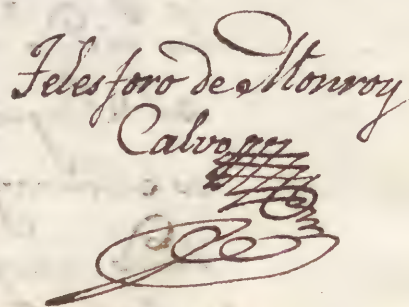 Telesforo de Monroy
Calvo